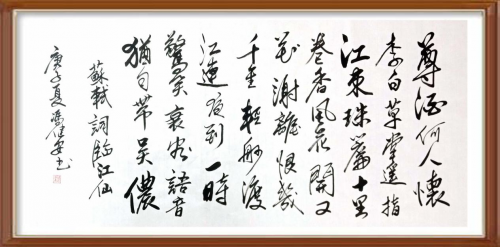 尊酒何人懷
李白草堂遥指
江東珠簾十里
卷香風花開又
花謝離恨幾
千重輕舸渡
江連夜到一時
驚笑衰容語音
猶自帶吳儂
蘇軾詞臨江仙
庚子夏馮健安书